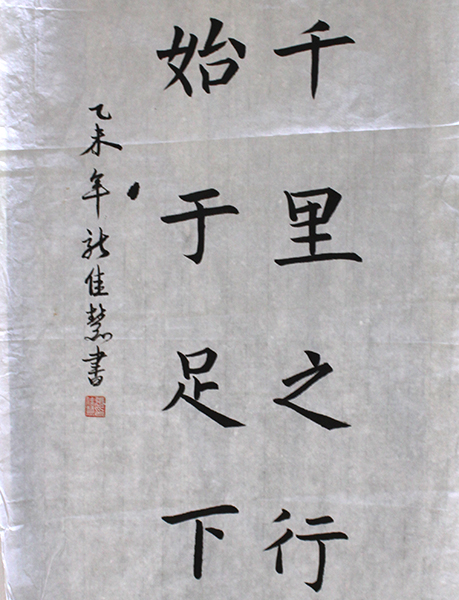 千里之行
始于足下
乙未年 佳慧書